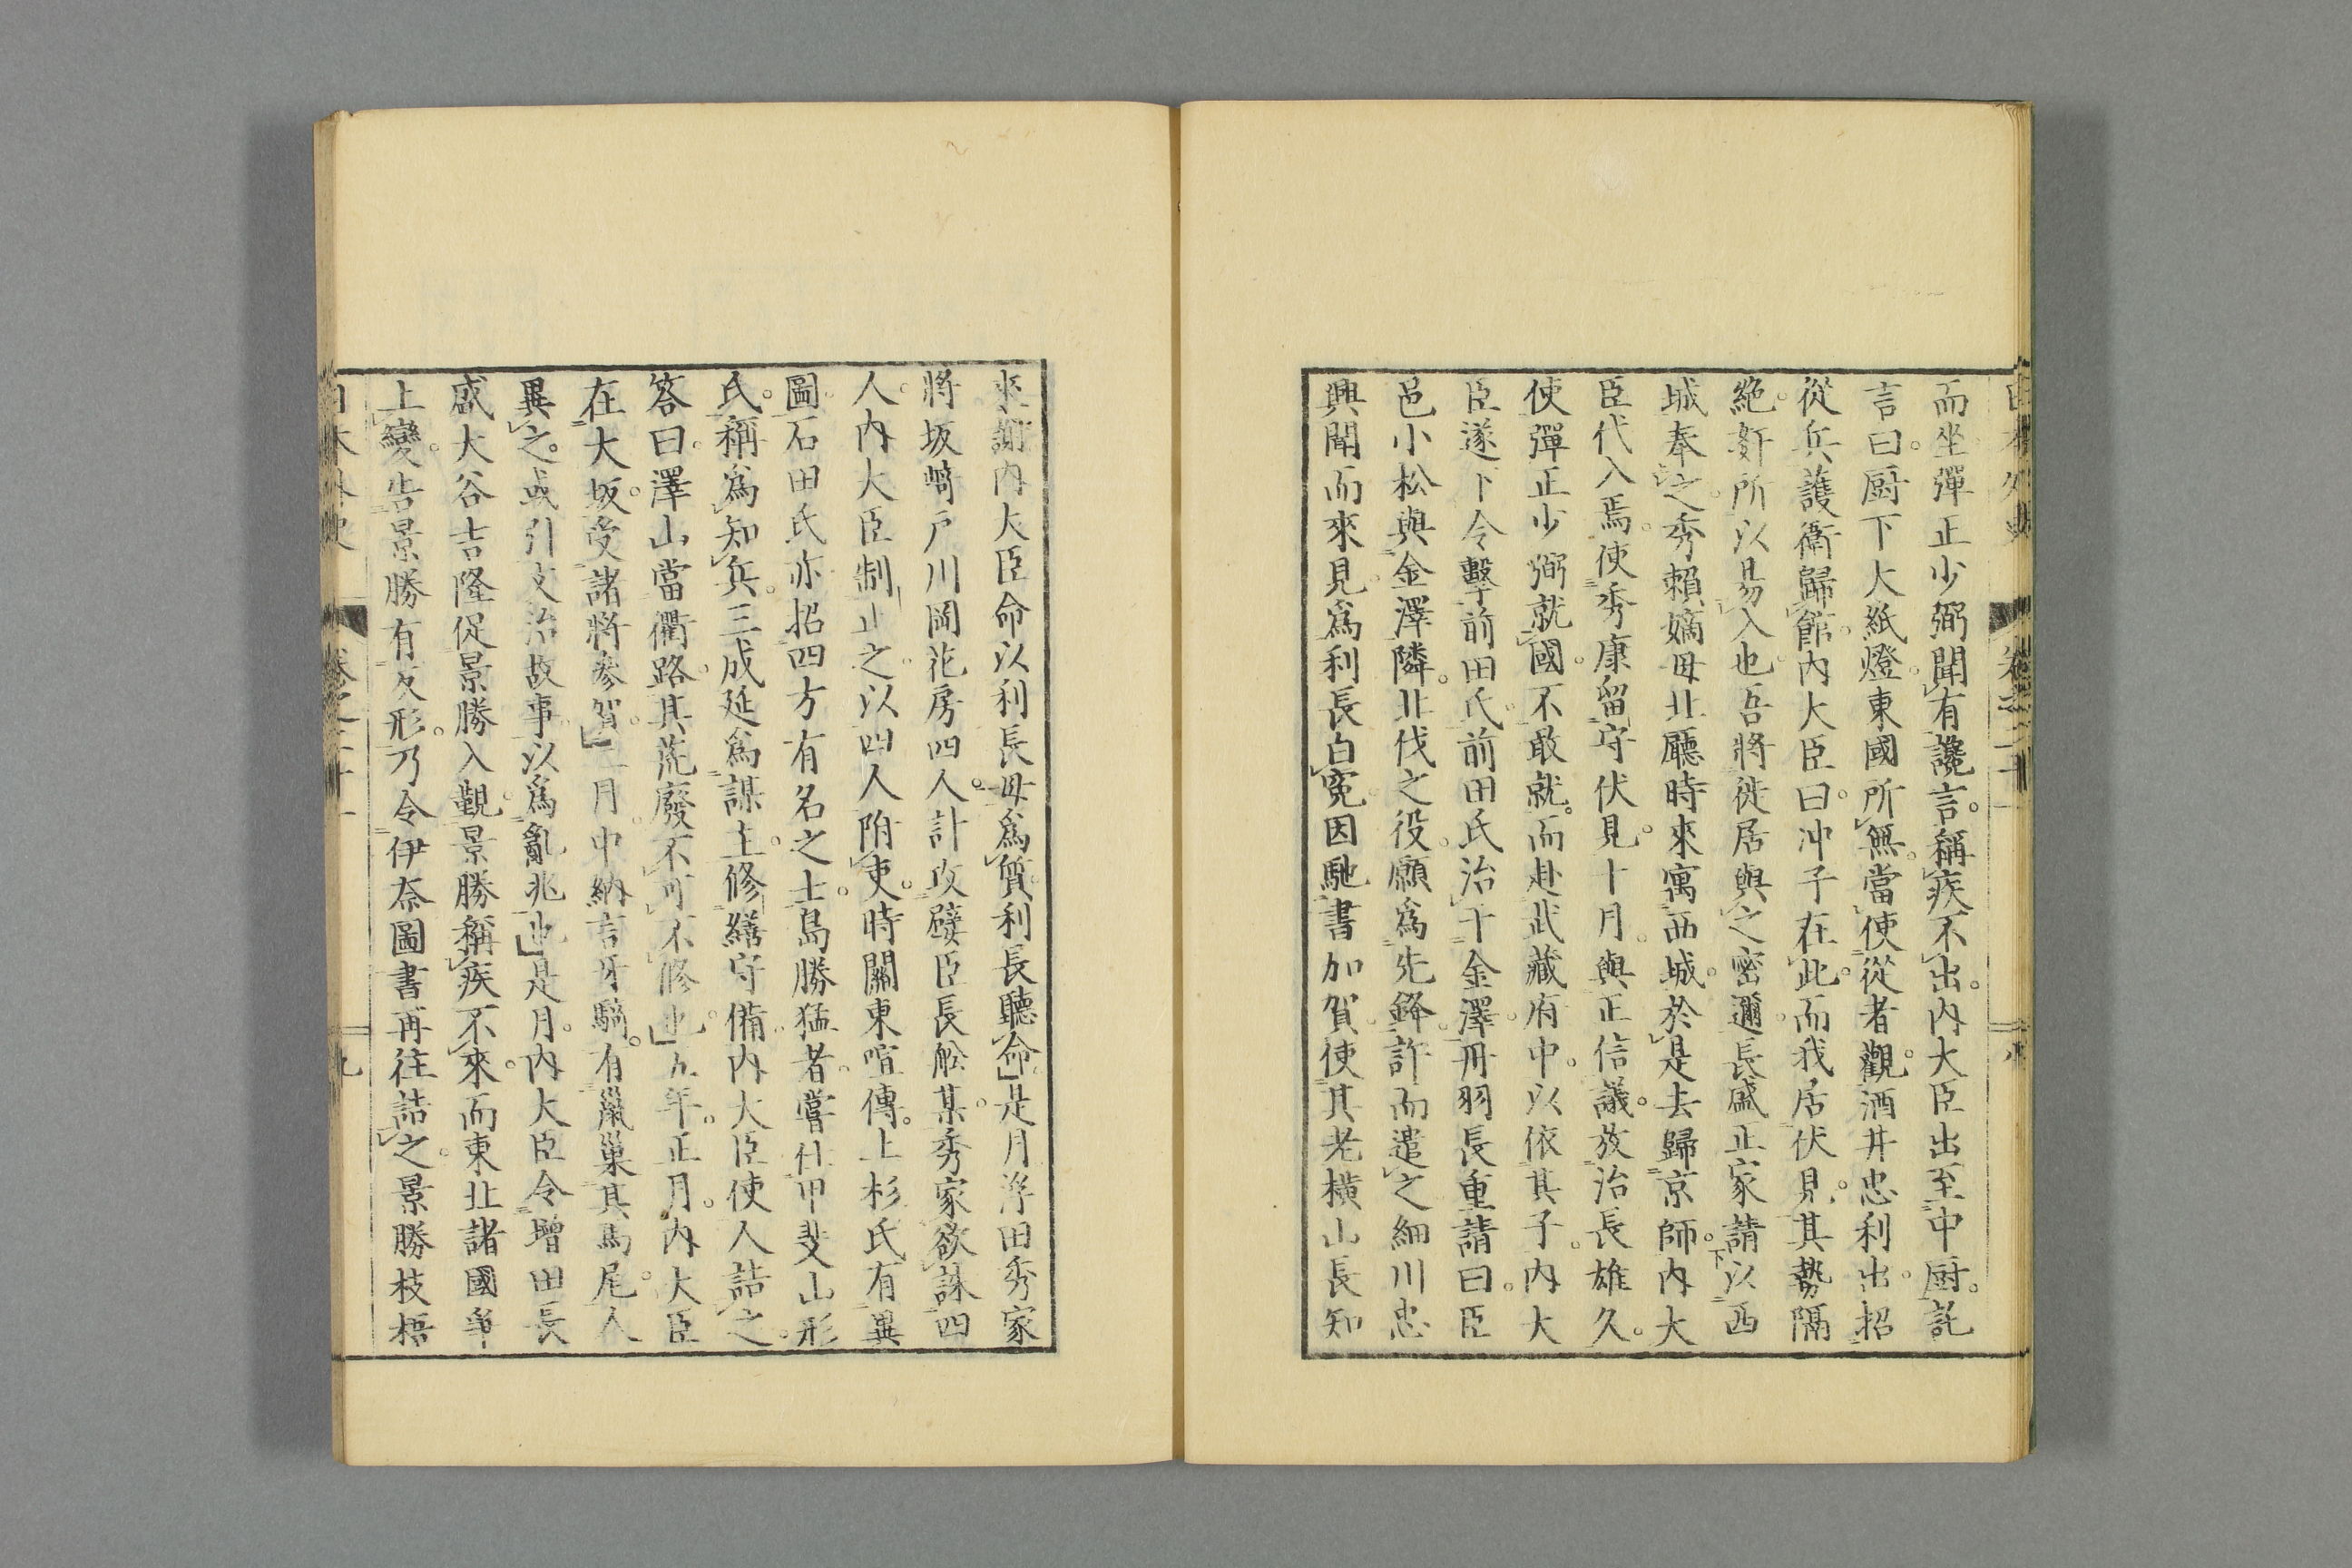 而坐彈正少弼聞有讒言。稱疾不出。内大臣出至中厨。託
言曰。厨下大紙燈。東國所無。當使從者觀。酒井忠利出。招
從兵護衞歸館。内大臣曰。冲子在此。而我居伏見。其勢隔
絶。姧所以易入也。吾將徙居與之密邇。長盛正家請以西
城奉之。秀頼嫡母北廳時來寓西城。於是去歸京師。内大
臣代入焉。使秀康留守伏見。十月。與正信議。放治長雄久。
使彈正少弼就國。不敢就。而赴武藏府中。以依其子。内大
臣遂下令擊前田氏。前田氏治于金澤。丹羽長重請曰。臣
邑小松與金澤隣。北伐之役。願爲先鋒。許而遣之。細川忠
興聞而來見。爲利長白寃。因馳書加賀。使其老横山長知
來謝。内大臣命以利長母爲質。利長聽命」是月浮田秀家
將坂﨑戸川岡花房四人。計攻嬖臣長舩某。秀家欲誅四
人。内大臣制止之。以四人附吏。時關東喧傳。上杉氏有異
圖。石田氏亦招四方有名之士。島勝猛者。嘗仕甲斐山形
氏。稱爲知兵。三成延爲謀主。修繕守備。内大臣使人詰之。
答曰。澤山當衢路。其荒廢不可不修也」五年。正月。内大臣
在大坂。受諸將參賀」二月。中納言牙騎。有鼠巢其馬尾。人
異之。或引文治故事。以爲亂兆也」是月。内大臣令増田長
盛大谷吉隆促景勝入覲。景勝稱疾不來。而東北諸國爭
上變。告景勝有反形。乃令伊奈圖書再往詰之。景勝枝梧